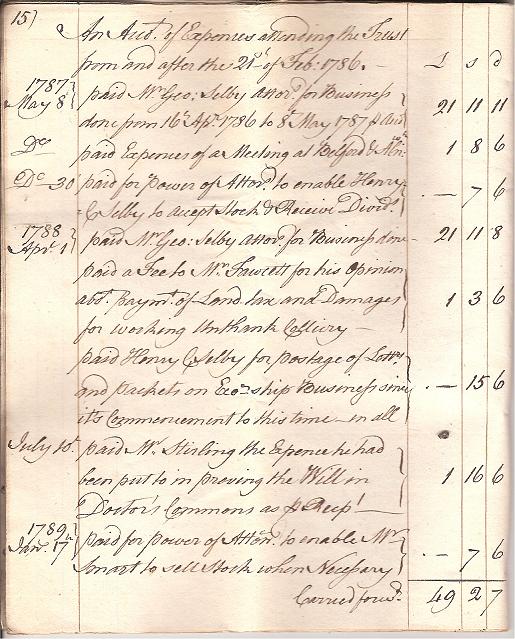 15)
An Acct. of Expences attending the Trust
from and after the 21st of Feb: 1786. — £ s d
1787
May 8 paid Mr Geo: Selby Attory. for Business
done from 16 Apr. 1786 to 8 May 1787 21 11 11
Do paid Expences of a Meeting at Belford & 1 8 6
Do 30 paid for power of Attory. to enable Henry
C Selby to accept Stock & Receive Divds. — 7 6
1788
Apr. 1 paid Mr Geo: Selby Attory. for Business done 21 11 8
paid a Fee to Mr Fawcett for his Opinion
abt. paymt. of Land tax and Damages 1 3 6
for working Unthank Colliery —
paid Henry C Selby for postage of Lettrs
and packets on Exo:ship Business since — 15 6
its Commencement to this time — in all
July 10 paid Mr. Stirling the Expence he had
been put to in proving the Will in 1 16 6
Doctor's Commons as p Recipt —
1789
Jany. 17th paid for power of Attorn. to enable Mr
Smart to sell Stock when Necessary — 7 6
Carried forwd. 49 2 7